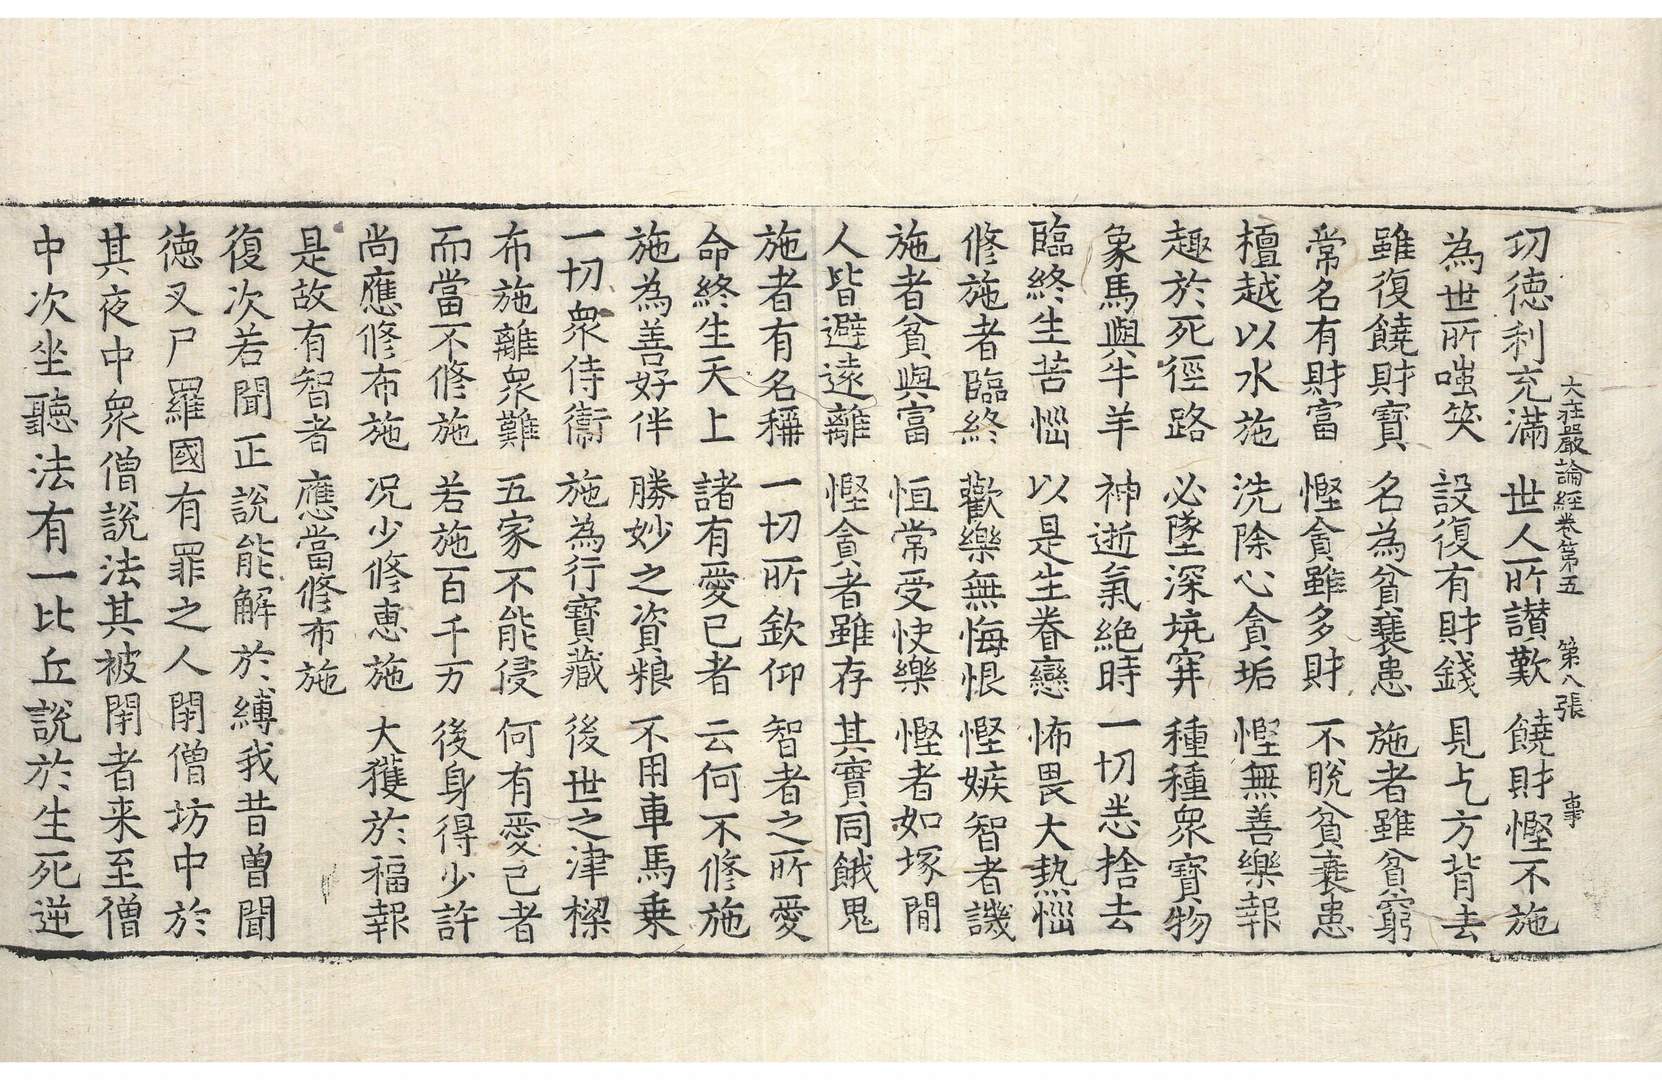 大莊嚴論經卷第五 第八張 事
功德利充滿 世人所讃歎 饒財慳不施
為世所嗤笑 設復有財錢 見乞方背去
雖復饒財寳 名為貧衰患 施者雖貧窮
常名有財富 慳貪雖多財 不脫貧衰患
檀越以水施 洗除心貪垢 慳無善樂報
趣於死徑路 必墜深坑穽 種種衆寳物
象馬與牛羊 神逝氣絶時 一切悉捨去
臨終生苦惱 以是生眷戀 怖畏大熱惱
修施者臨終 歡樂無悔恨 慳嫉智者譏
施者貧與富 恒常受快樂 慳者如塚間
人皆避遠離 慳貪者雖存 其實同餓鬼
施者有名稱 一切所欽仰 智者之所愛
命終生天上 諸有愛己者 云何不修施
施為善好伴 勝妙之資粮 不用車馬乗
一切衆侍衛 施為行寳藏 後世之津樑
布施離衆難 五家不能侵 何有愛己者
而當不修施 若施百千万 後身得少許
尚應修布施 况少修惠施 大獲於福報
是故有智者 應當修布施
復次若聞正說能解於縛我昔曾聞
德叉尸羅國有罪之人閉僧坊中於
其夜中衆僧説法其被閉者来至僧
中次坐聽法有一比丘説於生死逆